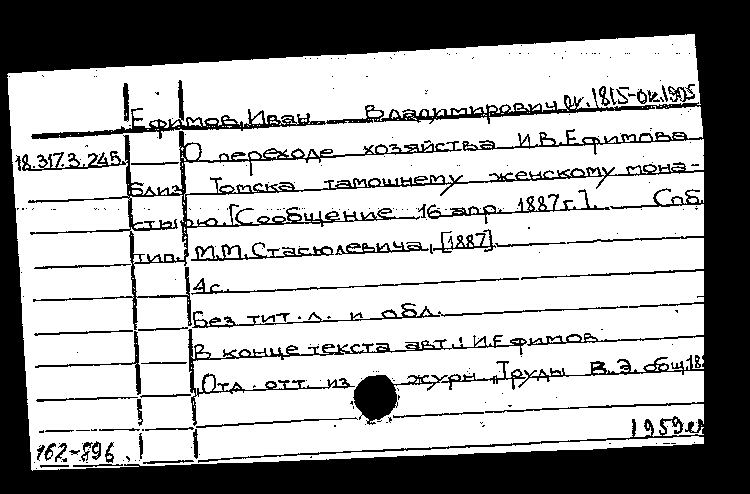 Ефимов, Иван Владимирович ок.1815-ок.1905
18.317.3.245. О переходе хозяйства И.В.Ефимова
близ Томска тамошнему женскому мона-
стырю. [Сообщение 16 апр. 1887г.]. Спб.
тип. М.М.Стасюлевича, [1887].
4с.
Без тит.л. и обл.
В конце текста авт.: И.Ефимов
"Отд. отт. из журн. "Труды В.Э. общ.188
162-896. 1959